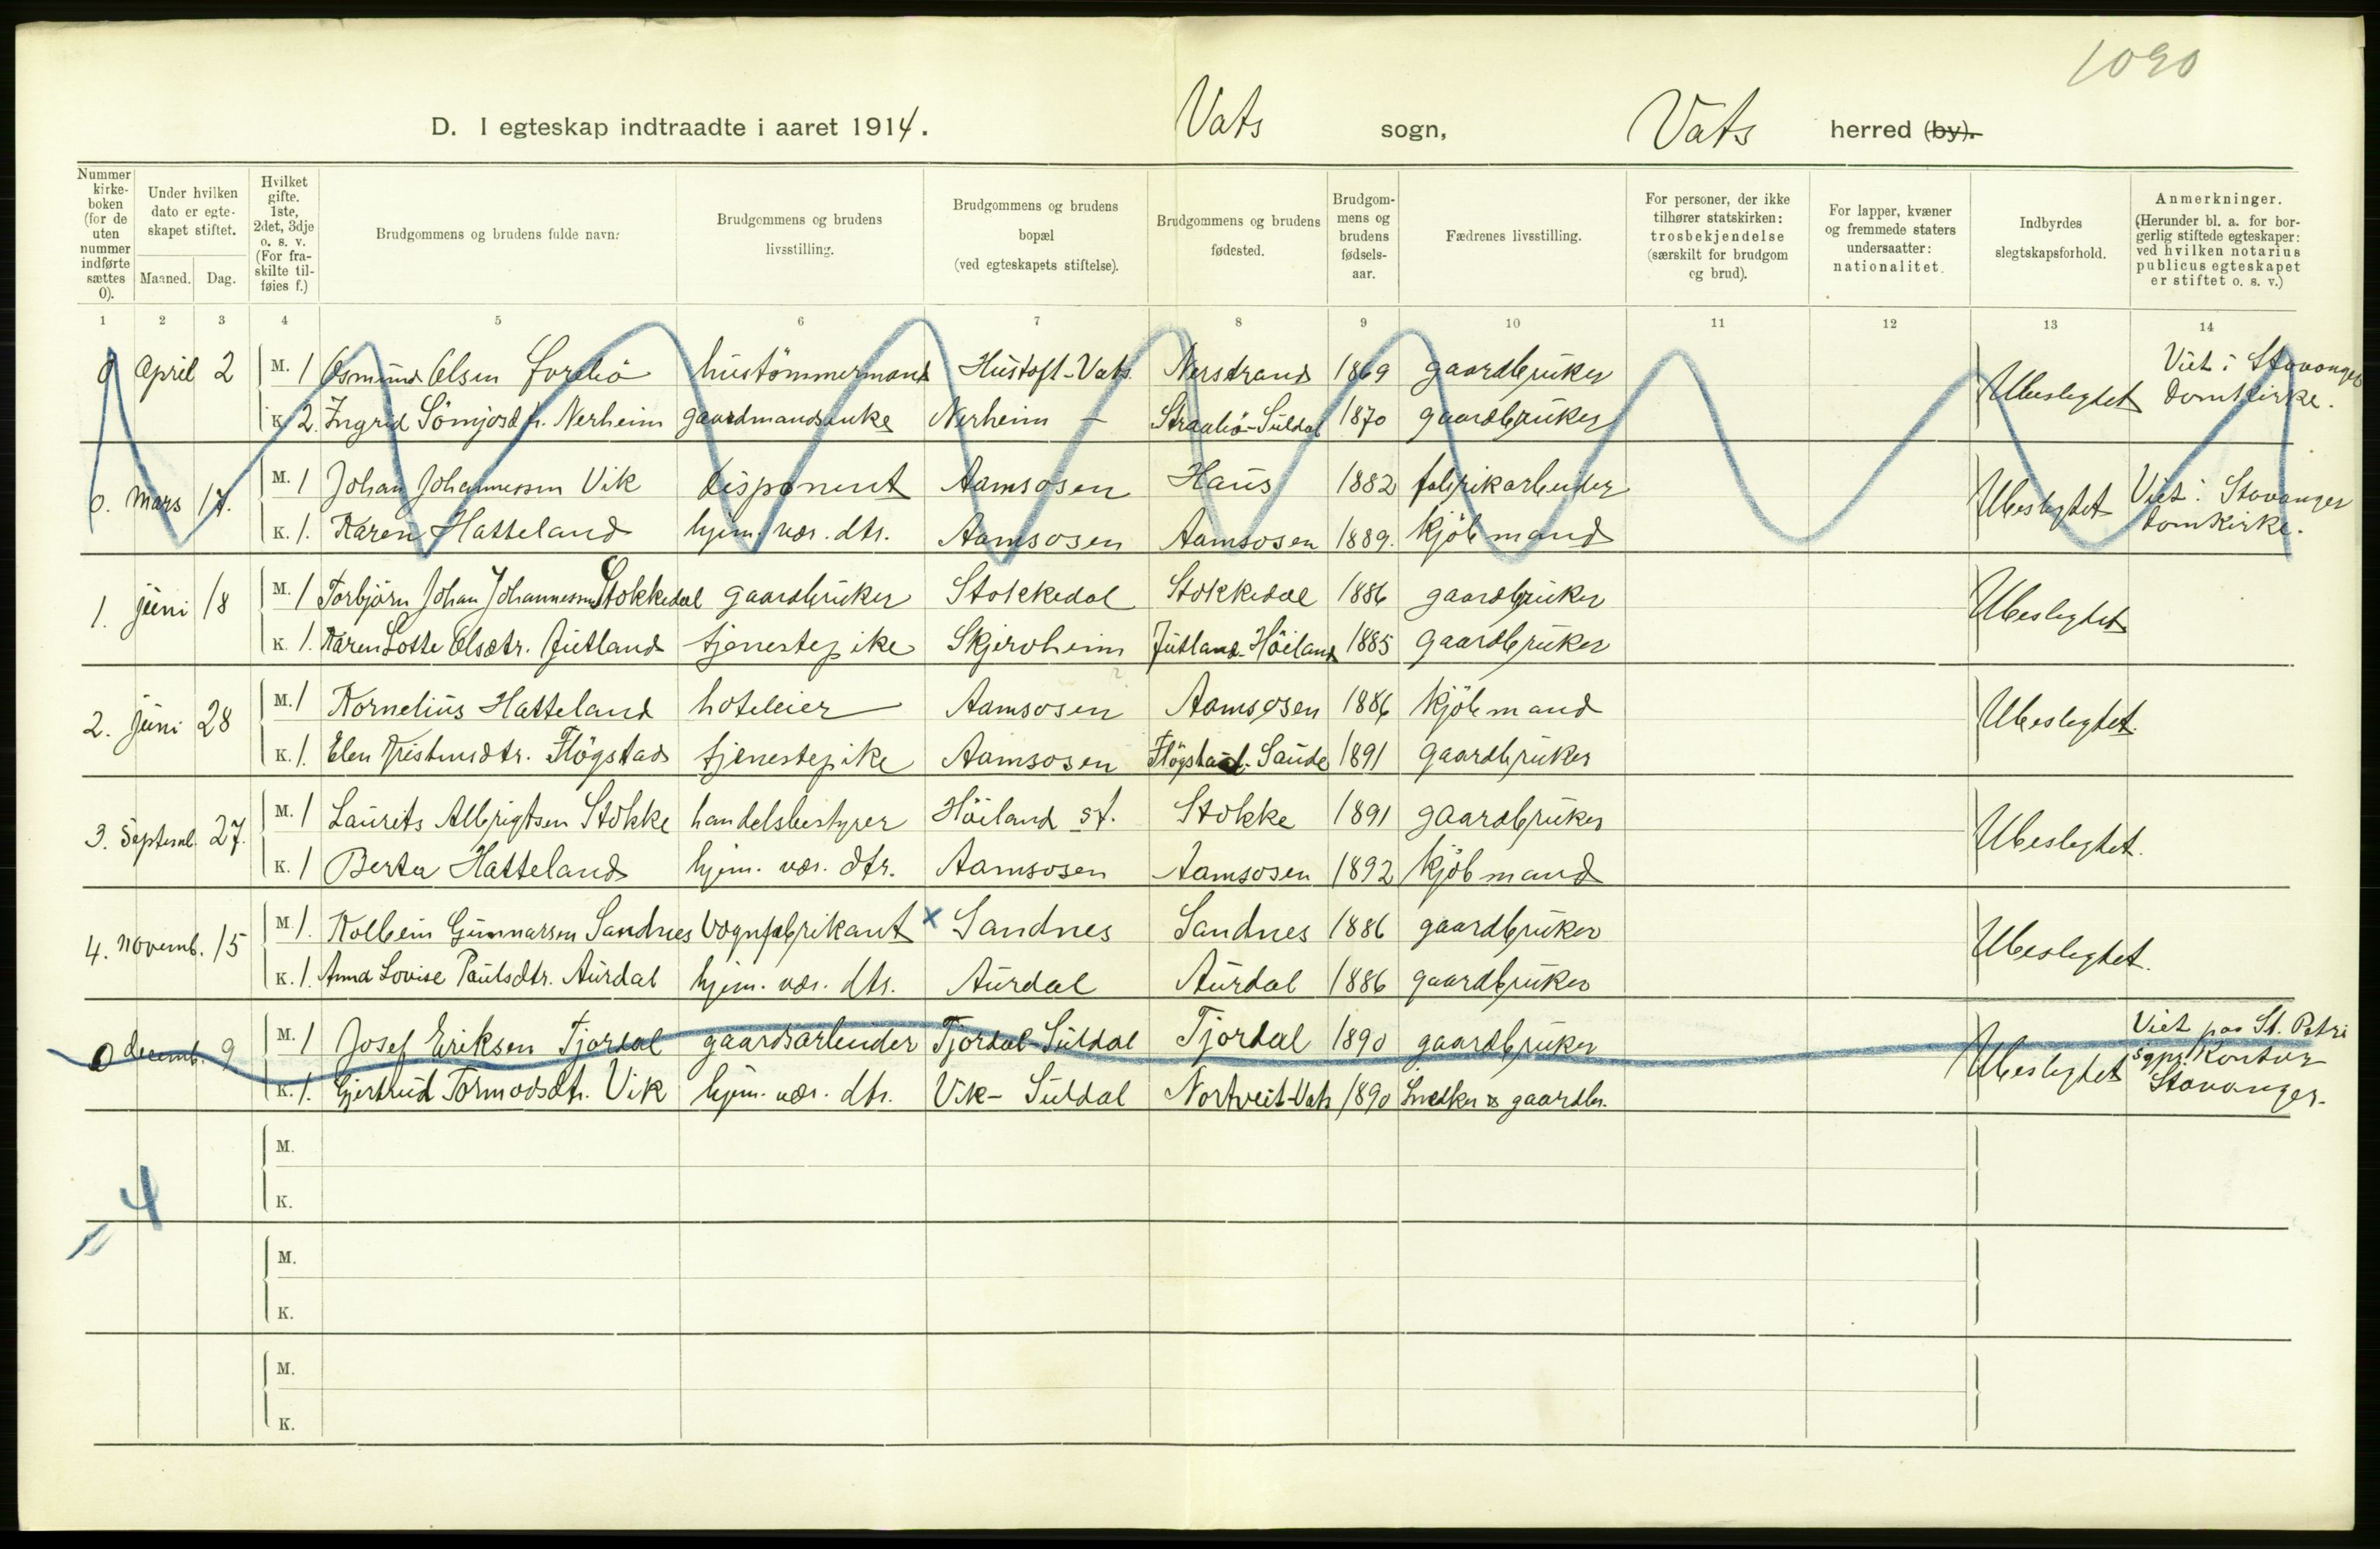 1090
D. I egteskap indtraadte i aaret 1914. Vats sogn, Vats herred (by).
Nummer kirke-boken (for de uten nummer indførte sættes 0). Under hvilken dato er egte-skapet stiftet. Maaned. Dag. Hvilket gifte. 1ste, 2det, 3dje o. s. v. (For fra-skilte til-føies f.) Brudgommens og brudens fulde navn: Brudgommens og brudens livsstilling. Brudgommens og brudens bopæl (ved egteskapets stiftelse). Brudgommens og brudens fødested. Brudgom-mens og brudens fødsels-aar. Fædrenes livsstilling. For personer, der ikke tilhører statskirken: trosbekjendelse (særskilt for brudgom og brud). For lapper, kvæner og fremmede staters undersaatter: nationalitet. Indbyrdes slegtskapsforhold. Anmerkninger. (Herunder bl. a. for bor-gerlig stiftede egteskaper: ved hvilken notarius publicus egteskapet er stiftet o. s. v.)
1 2 3 4 5 6 7 8 9 10 11 12 13 14
0 April 2 M. 1 Osmund Olsen hustömmermand Hustoft-Vats. Nerstrand 1869 gaardbruker Ubeslegtet Viet i Stavanger Domkirke.
K. 2. Ingrid Nerheim gaardmandsenke Nerheim – Suldal 1870 gaardbruker
0. Mars 17. M. 1 Johan Johannessen Vik disponent Aamsosen Haus 1882 fabrikarbeider Ubeslegtet Viet i Stavanger Domkirke.
K. 1. Karen Hatteland hjem. vær. dtr. Aamsosen Aamsosen 1889. kjöbmand
1. juni 18 M. 1 Torbjörn Johan Johannessen Stokkedal gaardbruker Stokkedal Stokkedal 1886 gaardbruker Ubeslegtet
K. 1. Karen Lotte Olsdtr. Jutland tjenestepike Skjerheim Jutland-Höiland 1885 gaardbruker
2. juni 28 M. 1 Kornelius Hatteland hoteleier Aamsosen Aamsosen 1886 kjöbmand Ubeslegtet.
K. 1. Elen Kristensdtr. Flögstad tjenestepike Aamsosen Flögstad-Saude 1891 gaardbruker
3. Septemb. 27. M. 1 Laurits Albrigtsen Stokke handelsbestyrer Höiland st. Stokke 1891 gaardbruker Ubeslegtet.
K. 1 Berta Hatteland hjem. vær. dtr. Aamsosen Aamsosen 1892 kjöbmand
4. Novemb. 15 M. 1. Kolbein Gunnarsen Sandnes Vognfabrikant x Sandnes Sandnes 1886 gaardbruker Ubeslegtet.
K. 1. Anna Lovise Paulsdtr. Aurdal hjem. vær. dtr. Aurdal Aurdal 1886 gaardbruker
0 decemb. 9 M. 1 Josef Eriksen Tjordal gaardsarbeider Tjordal-Suldal Tjordal 1890 gaardbruker Ubeslegtet Viet paa St. Petri sgpr. Kontor Stavanger.
K. 1. Gjertrud Tormodsdtr. Vik hjem. vær. dtr. Vik – Suldal Nortveit-Vats 1890 Snedker & gaardbr.
M.
K.
4
M.
K.
M.
K.